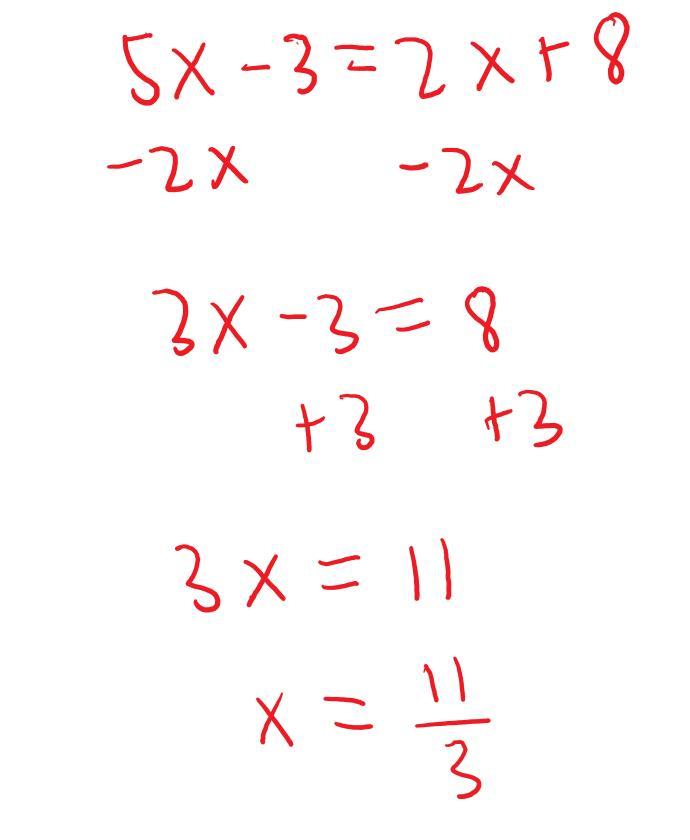 5x - 3 = 2x + 8
-2x -2x
3x - 3 = 8
+3 +3
3x = 11
x = 11/3